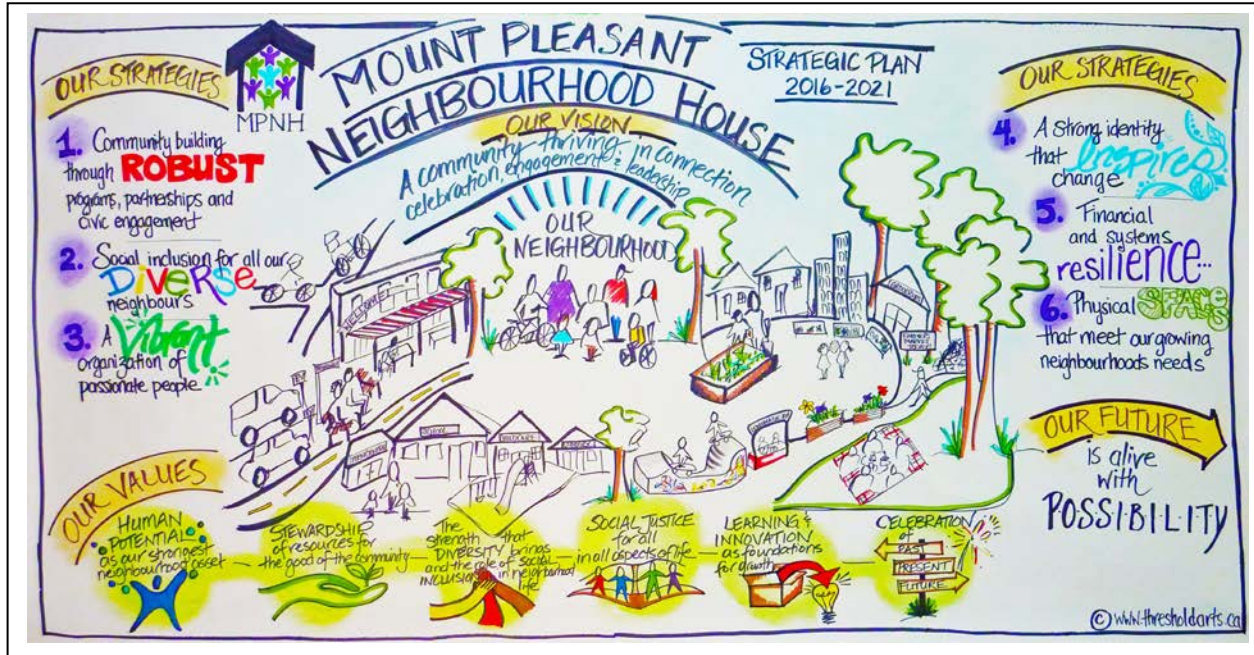 MOUNT PLEASANT
NEIGHBOURHOOD HOUSE
STRATEGIC PLAN
2016-2021
MPNH
OUR STRATEGIES
1. Community building
through ROBUST
programs, partnerships and
civic engagement
2. Social inclusion for all our
DiVERSE
neighbours
3. A Vibrant
organization of
passionate people
OUR VISION
A community thriving in connection
celebration, engagement & leadership
OUR
NEIGHBOURHOOD
OUR STRATEGIES
4. A strong identity
that inspires
change
5. Financial
and systems
resilience...
6. Physical SPACES
that meet our growing
neighbourhoods needs
OUR FUTURE
is alive
with
POSSIBILITY
OUR VALUES
HUMAN
POTENTIAL
as our strongest
neighbourhood asset
STEWARDSHIP
of resources for
the good of the community
The
strength that
DIVERSITY brings
and the role of social
INCLUSION in neighborhood
life
SOCIAL JUSTICE
for all
in all aspects of life
LEARNING &
INNOVATION
as foundations
for growth
CELEBRATION
of
PAST
PRESENT
FUTURE
© www.thresholdarts.ca